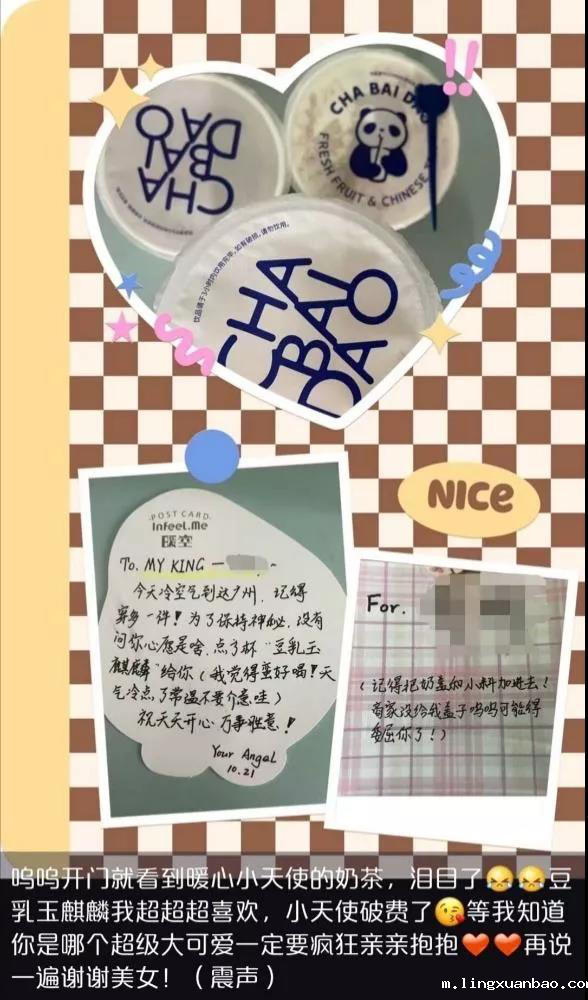 CHA
BAI
DAO
CHA BAI DAO
FRESH FRUIT & CHINESE
饮品请于1小时内饮用完毕,如有破损,请勿饮用。
CHA
BAI
DAO
!!
NICE
·POST CARD·
Infeel.Me
To. MY KING —
今天冷空气到达广州,记得
穿多一件!为了保持神秘,没有
问你心愿是啥,点了杯“豆乳玉
麒麟”给你(我觉得蛮好喝!天
气冷点了常温不要介意哇)
祝天天开心 万事胜意!
Your Angel
10.21
For.
(记得把奶盖和小料加进去!
商家没给我盖子呜呜可能得
委屈你了!)
呜呜开门就看到暖心小天使的奶茶,泪目了😭😭豆
乳玉麒麟我超超超喜欢,小天使破费了😘等我知道
你是哪个超级大可爱一定要疯狂亲亲抱抱❤️❤️再说
一遍谢谢美女!(震声)
m.lingxuanbao.co